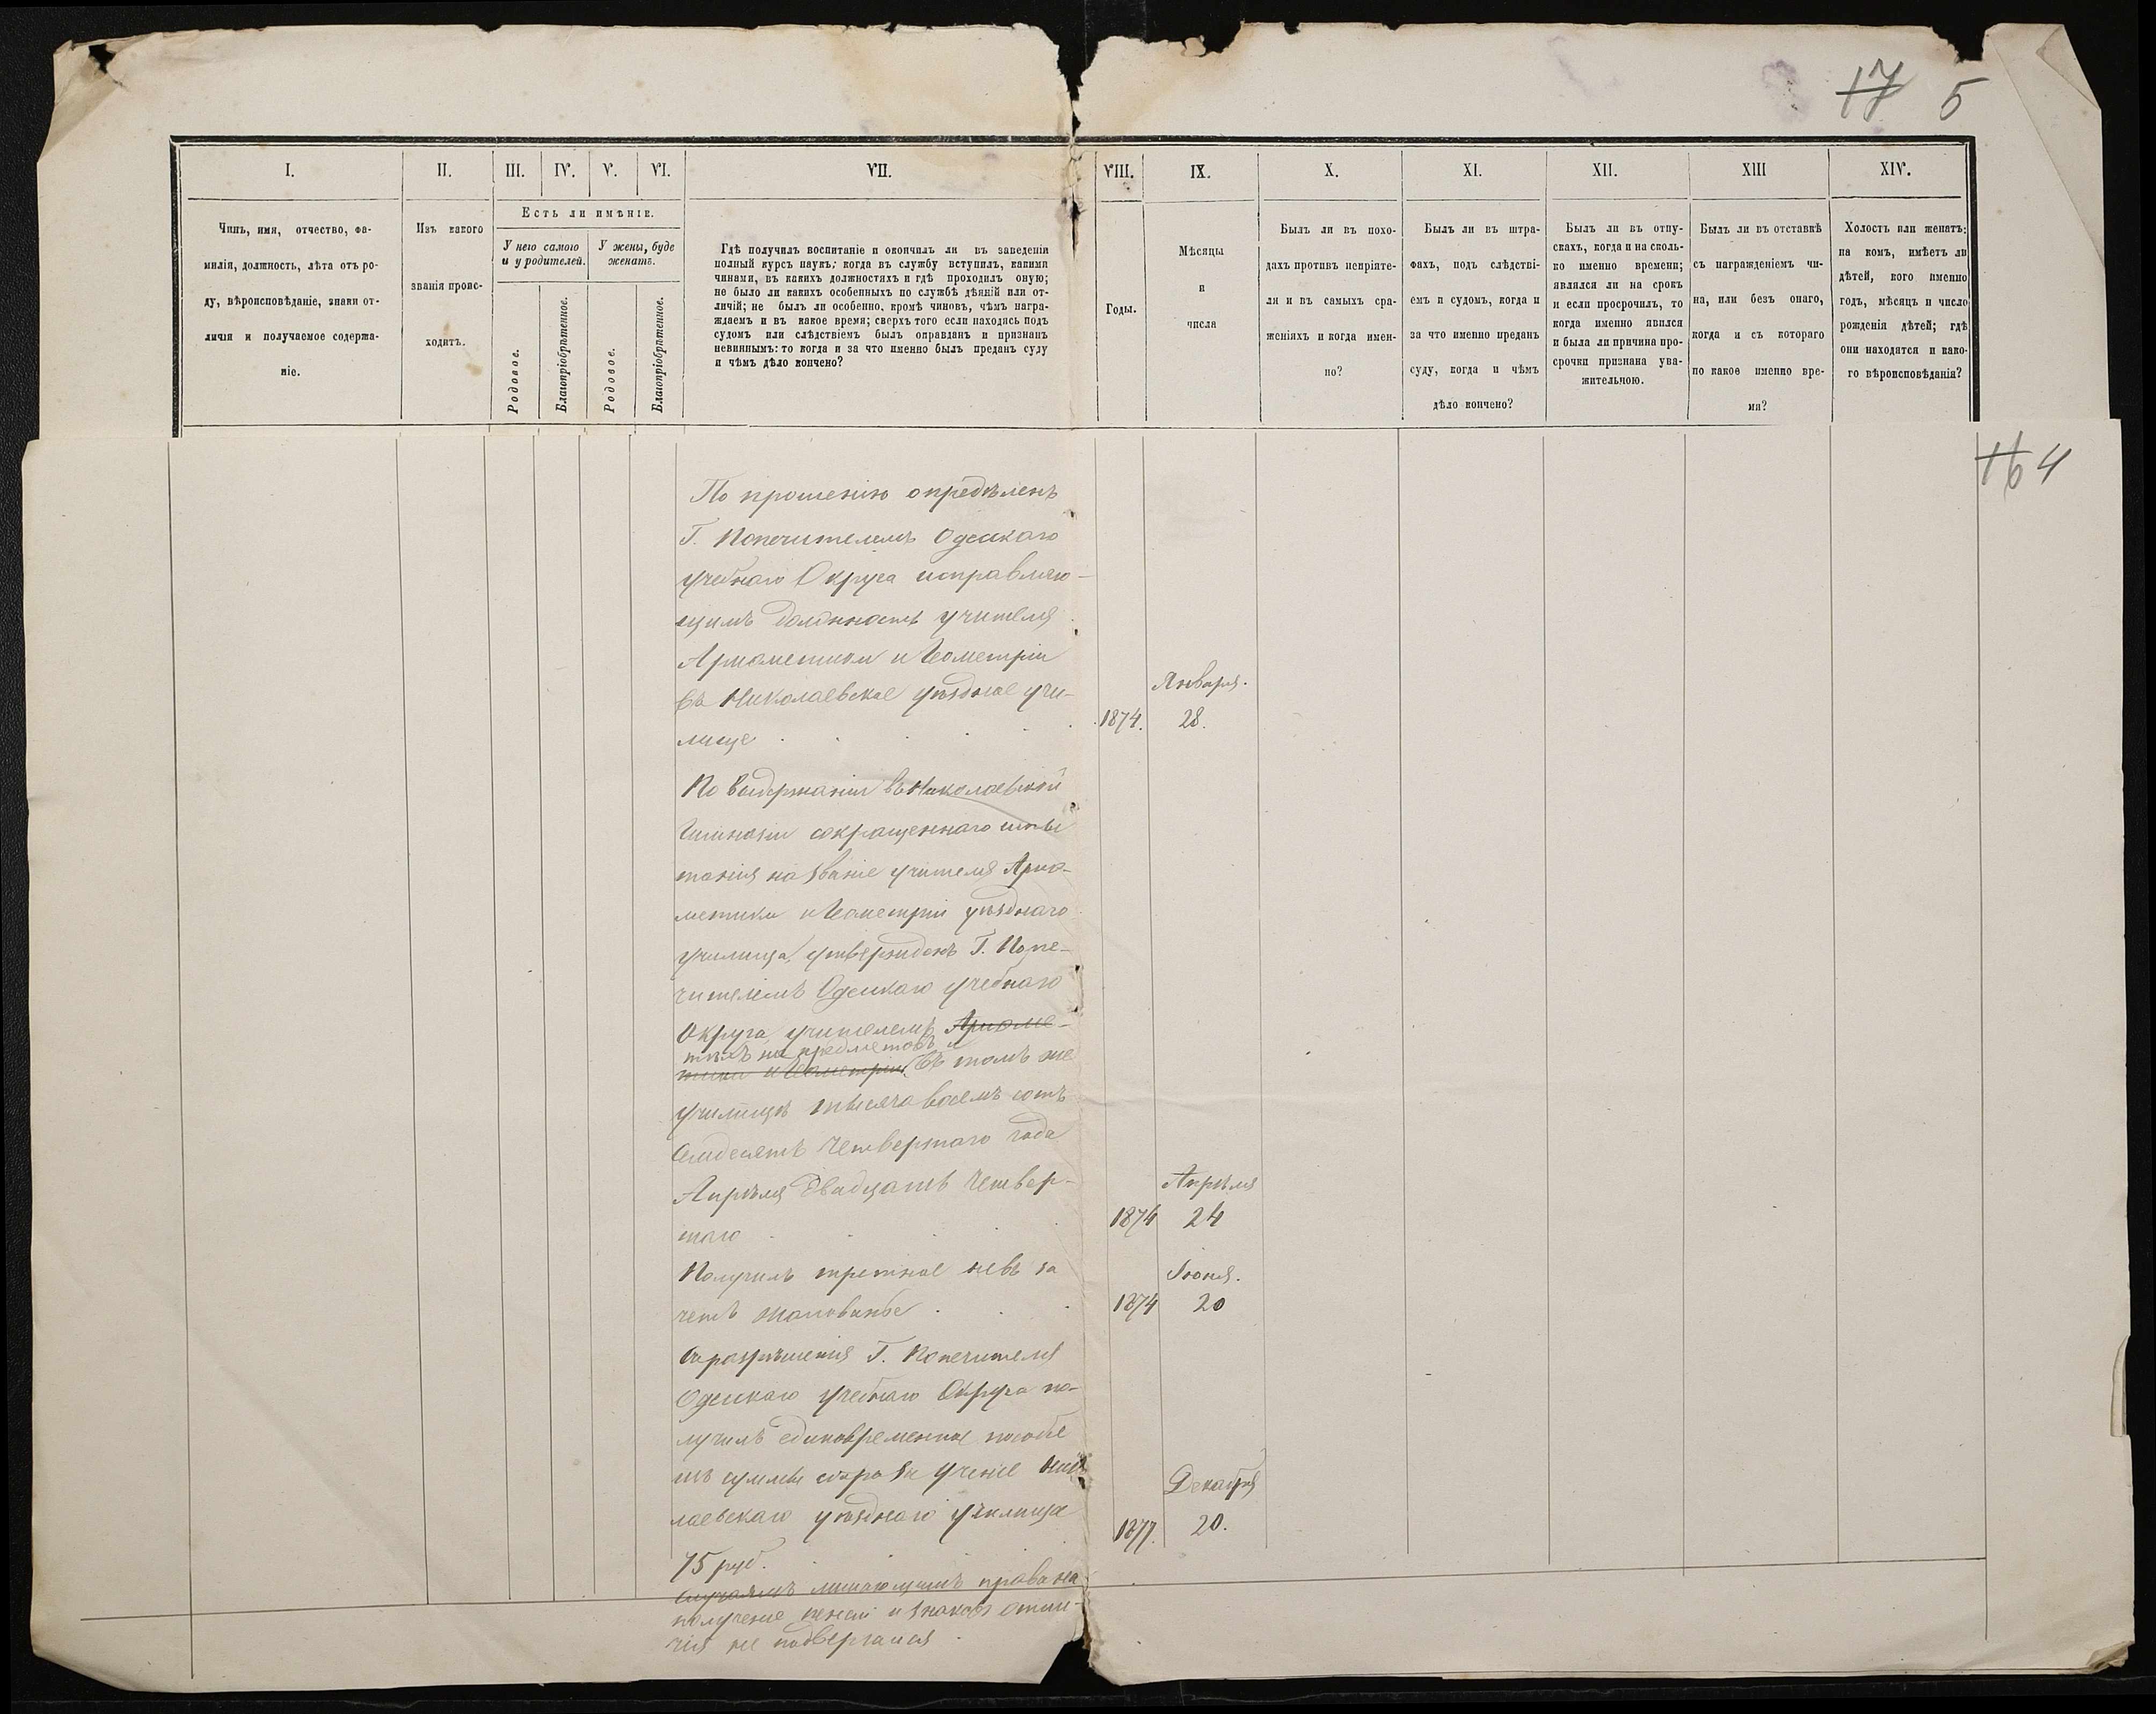 17 5
I.
II.
III.
IV.
V.
VI.
VII.
VIII.
IX.
X.
XI.
XII.
XIII
XIV.
Чинъ, имя, отчество, фа-
милія, должность, лѣта отъ ро-
ду, вѣроисповѣданіе, знаки от-
личія и получаемое содержа-
ніе.
Изъ какого
званія проис-
ходитъ.
Есть ли имѣніе.
У него самого
и у родителей.
У жены, буде
женатъ.
Родовое.
Благопріобрѣтенное.
Родовое.
Благопріобрѣтенное.
Гдѣ получилъ воспитаніе и окончилъ ли въ заведеніи
полный курсъ наукъ; когда въ службу вступилъ, какими
чинами, въ какихъ должностяхъ и гдѣ проходилъ оную;
не было ли какихъ особенныхъ по службѣ дѣяній или от-
личій; не былъ ли особенно, кромѣ чиновъ, чѣмъ награ-
ждаемъ и въ какое время; сверхъ того если находясь подъ
судомъ или слѣдствіемъ былъ оправданъ и признанъ
невиннымъ: то когда и за что именно былъ преданъ суду
и чѣмъ дѣло кончено?
Годы.
Мѣсяцы
и
числа
Былъ ли въ похо-
дахъ противъ непріяте-
ля и въ самыхъ сра-
женіяхъ и когда имен-
но?
Былъ ли въ штра-
фахъ, подъ слѣдстві-
емъ и судомъ, когда и
за что именно преданъ
суду, когда и чѣмъ
дѣло кончено?
Былъ ли въ отпу-
скахъ, когда и на сколь-
ко именно времени;
являлся ли на срокъ
и если просрочилъ, то
когда именно явился
и была ли причина про-
срочки признана ува-
жительною.
Былъ ли въ отставкѣ
съ награжденіемъ чи-
на, или безъ онаго,
когда и съ котораго
по какое именно вре-
мя?
Холостъ или женатъ;
на комъ, имѣетъ ли
дѣтей, кого именно
годъ, мѣсяцъ и число
рожденія дѣтей; гдѣ
они находятся и како-
го вѣроисповѣданія?
16 4
По прошенію опредѣленъ
Г. Попечителемъ Одесскаго
учебнаго Округа исправляю-
щимъ должность учителя
Ариѳметики и Геометріи
въ Николаевское уѣздное учи-
лище
1874.
Января.
28.
По выдержаніи въ Николаевской
Гимназіи сокращеннаго испы
танія на званіе учителя Ариѳ-
метики и Геометріи уѣзднаго
училища, утвержденъ Г. Попе-
чителемъ Одесскаго учебнаго
Округа учителемъ Ариѳме-
тѣхъ же предметовъ
тики и Геометріи въ томъ же
училищѣ тысяча восемь сотъ
семдесятъ четвертаго года
Апрѣля двадцать четвер-
таго
1874
Апрѣля
24
Получилъ третное не въ за
четъ жалованье
1874
Іюня.
20
Съ разрѣшенія Г. Попечителя
Одесскаго учебнаго Округа по-
лучилъ единовременное пособіе
изъ суммы сбора за ученіе Нико
лаевскаго уѣзднаго училища
75 руб.
1877.
Декабря
20.
Случаямъ лишающимъ права на
полученіе пенсіи и знаковъ отли-
чія не подвергался